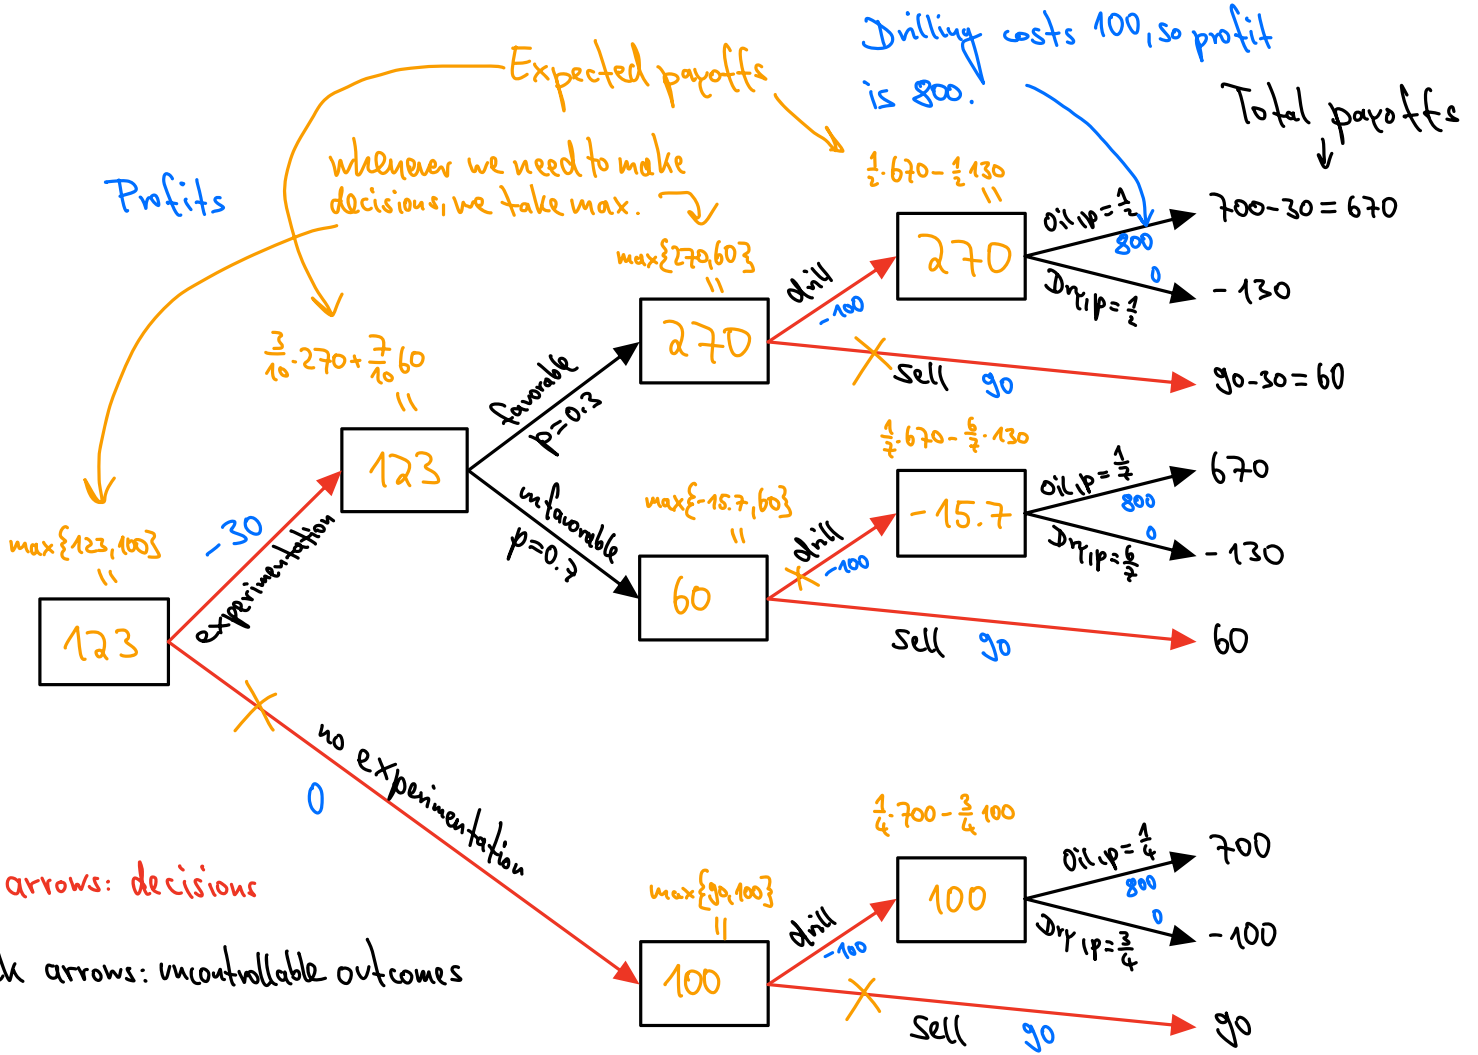 Drilling costs 100, so profit
is 800.
Expected payoffs
Total payoffs
whenever we need to make
decisions, we take max.
Profits
1/2·670 - 1/2 130
=
270
Oil, p=1/2
800
700-30=670
Dry, p=1/2
0
-130
max{270,60}
=
270
drill
-100
sell 90
90-30=60
3/10·270+7/10 60
=
123
favorable
p=0.3
unfavorable
p=0.7
1/7·670 - 6/7·130
-15.7
Oil, p=1/7
800
670
Dry, p=6/7
0
-130
max{-15.7,60}
=
60
drill
-100
sell 90
60
max{123,100}
=
123
-30
experimentation
no experimentation
0
1/4·700 - 3/4 100
100
Oil, p=1/4
800
700
Dry, p=3/4
0
-100
max{90,100}
=
100
drill
-100
sell 90
90
arrows: decisions
k arrows: uncontrollable outcomes